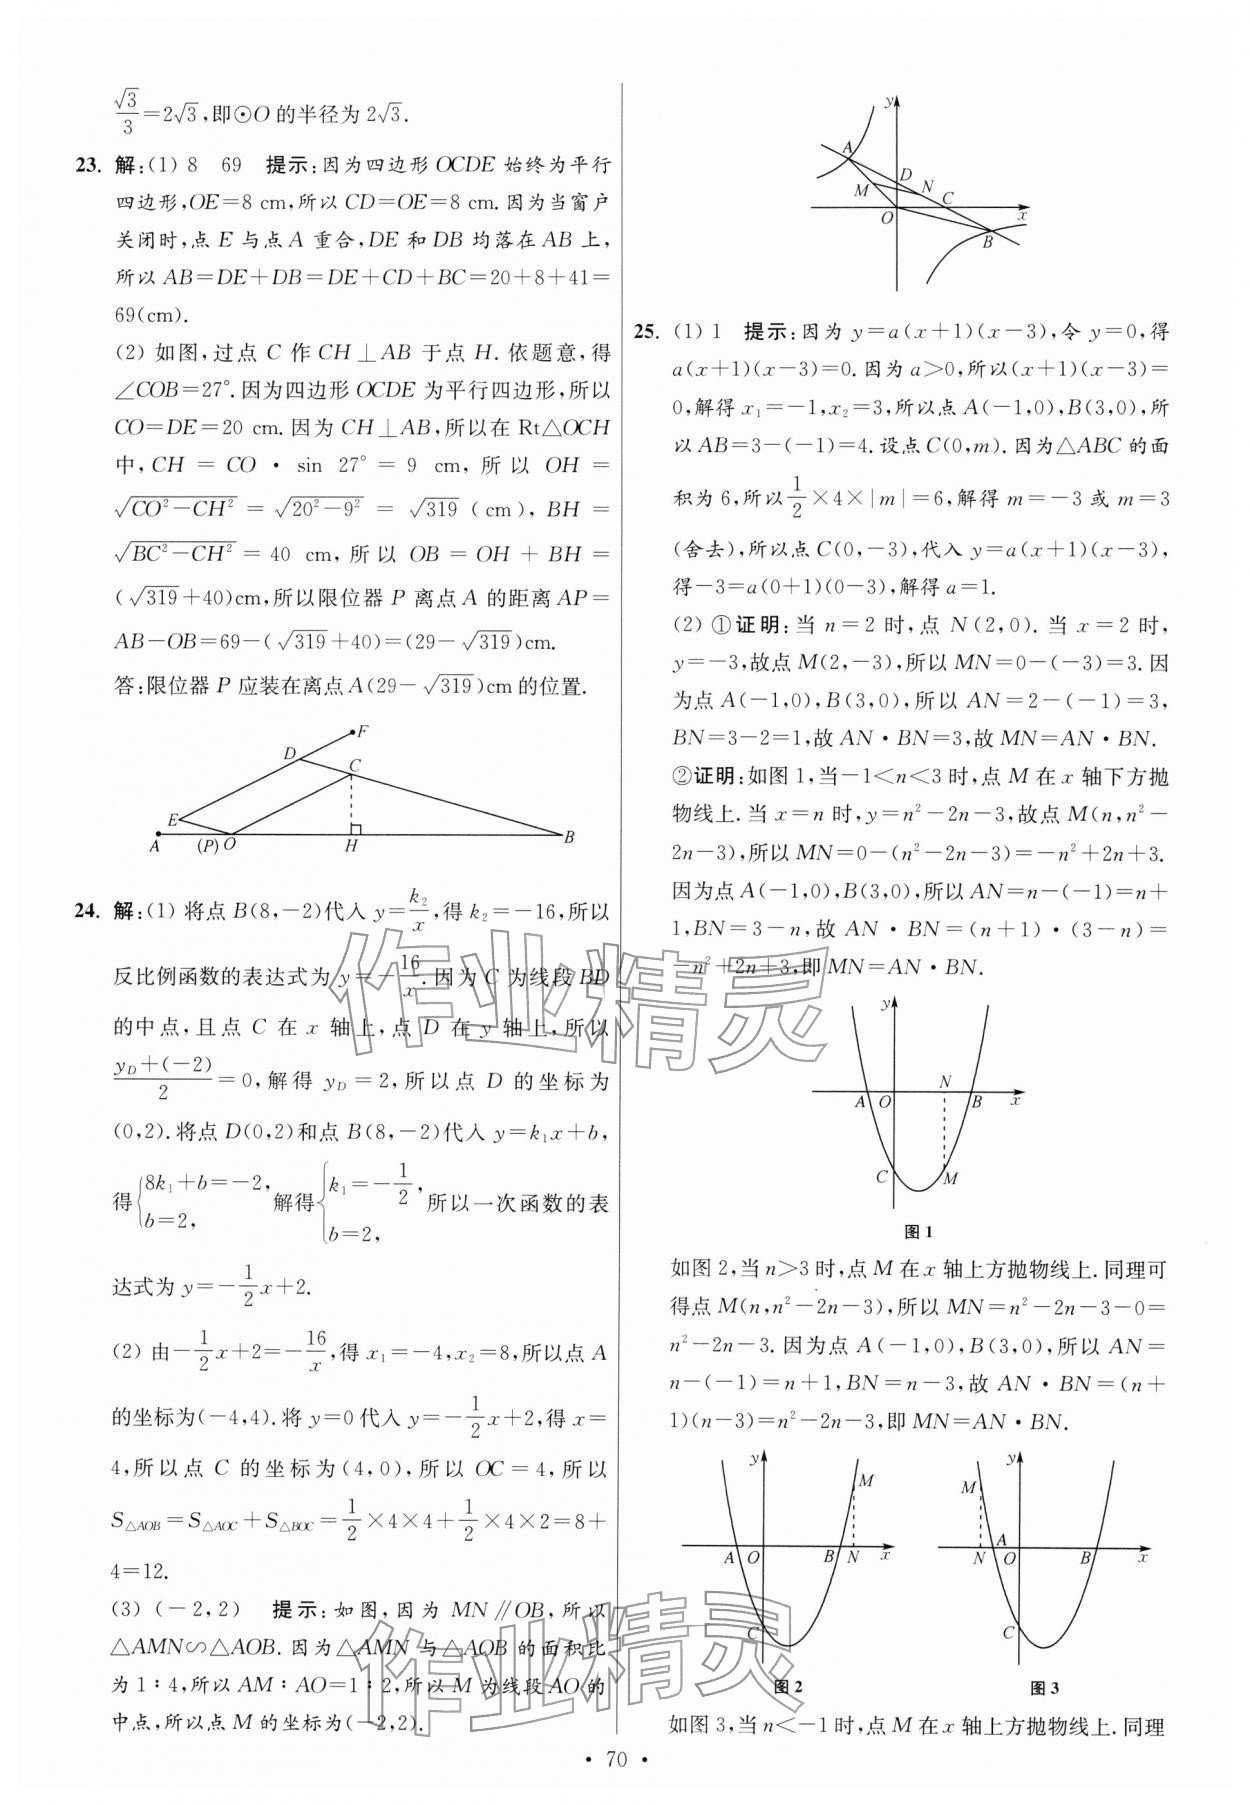 √3/3=2√3,即⊙O的半径为2√3.
23. 解:(1) 8 69 提示:因为四边形OCDE始终为平行
四边形,OE=8 cm,所以CD=OE=8 cm.因为当窗户
关闭时,点E与点A重合,DE和DB均落在AB上,
所以AB=DE+DB=DE+CD+BC=20+8+41=
69(cm).
(2) 如图,过点C作CH⊥AB于点H.依题意,得
∠COB=27°.因为四边形OCDE为平行四边形,所以
CO=DE=20 cm.因为CH⊥AB,所以在Rt△OCH
中,CH=CO·sin 27°=9 cm,所以OH=
√(CO²-CH²)=√(20²-9²)=√319(cm),BH=
√(BC²-CH²)=40 cm,所以OB=OH+BH=
(√319+40)cm,所以限位器P离点A的距离AP=
AB-OB=69-(√319+40)=(29-√319)cm.
答:限位器P应装在离点A(29-√319)cm的位置.
F
D
C
E
A (P) O H B
24. 解:(1) 将点B(8,-2)代入y=k₂/x,得k₂=-16,所以
反比例函数的表达式为y=-16/x.因为C为线段BD
的中点,且点C在x轴上,点D在y轴上,所以
(y_D+(-2))/2=0,解得y_D=2,所以点D的坐标为
(0,2).将点D(0,2)和点B(8,-2)代入y=k₁x+b,
得{8k₁+b=-2, b=2, 解得{k₁=-1/2, b=2, 所以一次函数的表
达式为y=-1/2x+2.
(2) 由-1/2x+2=-16/x,得x₁=-4,x₂=8,所以点A
的坐标为(-4,4).将y=0代入y=-1/2x+2,得x=
4,所以点C的坐标为(4,0),所以OC=4,所以
S△AOB=S△AOC+S△BOC=1/2×4×4+1/2×4×2=8+
4=12.
(3) (-2,2) 提示:如图,因为MN∥OB,所以
△AMN∽△AOB.因为△AMN与△AOB的面积比
为1∶4,所以AM∶AO=1∶2,所以M为线段AO的
中点,所以点M的坐标为(-2,2).
y
A
D
M N C
O x
B
25. (1) 1 提示:因为y=a(x+1)(x-3),令y=0,得
a(x+1)(x-3)=0.因为a>0,所以(x+1)(x-3)=
0,解得x₁=-1,x₂=3,所以点A(-1,0),B(3,0),所
以AB=3-(-1)=4.设点C(0,m).因为△ABC的面
积为6,所以1/2×4×|m|=6,解得m=-3或m=3
(舍去),所以点C(0,-3),代入y=a(x+1)(x-3),
得-3=a(0+1)(0-3),解得a=1.
(2) ①证明:当n=2时,点N(2,0).当x=2时,
y=-3,故点M(2,-3),所以MN=0-(-3)=3.因
为点A(-1,0),B(3,0),所以AN=2-(-1)=3,
BN=3-2=1,故AN·BN=3,故MN=AN·BN.
②证明:如图1,当-1<n<3时,点M在x轴下方抛
物线上.当x=n时,y=n²-2n-3,故点M(n,n²-
2n-3),所以MN=0-(n²-2n-3)=-n²+2n+3.
因为点A(-1,0),B(3,0),所以AN=n-(-1)=n+
1,BN=3-n,故AN·BN=(n+1)·(3-n)=
-n²+2n+3,即MN=AN·BN.
y
N
A O B x
C M
图1
如图2,当n>3时,点M在x轴上方抛物线上.同理可
得点M(n,n²-2n-3),所以MN=n²-2n-3-0=
n²-2n-3.因为点A(-1,0),B(3,0),所以AN=
n-(-1)=n+1,BN=n-3,故AN·BN=(n+
1)(n-3)=n²-2n-3,即MN=AN·BN.
y
M
A O B N x
C
图2
y
M
N A O B x
C
图3
如图3,当n<-1时,点M在x轴上方抛物线上.同理
· 70 ·
作业精灵
作业精灵